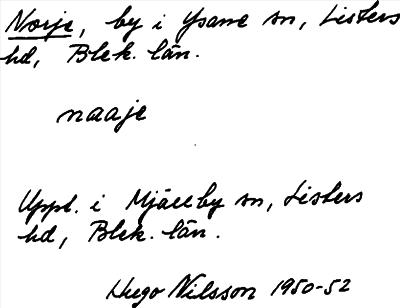 Norje, by i Ysane sn, Listers
hd, Blek. län.
naaje
Uppt. i Mjällby sn, Listers
hd, Blek. län.
Hugo Nilsson 1950-52